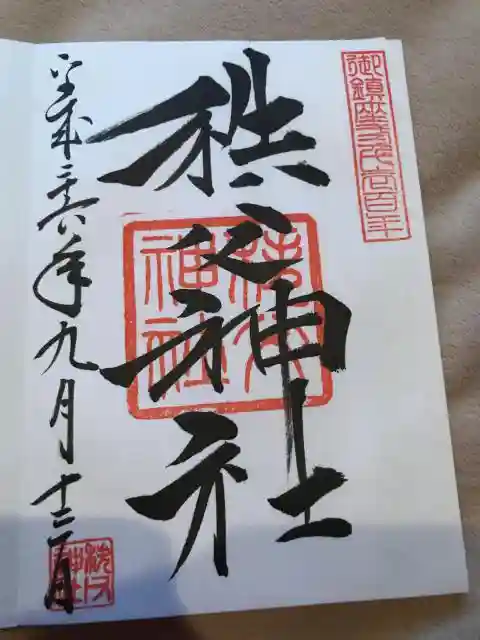 御鎮座弐阡壱百年
秩父神社
秩父神社
平成二十六年九月
秩父神社